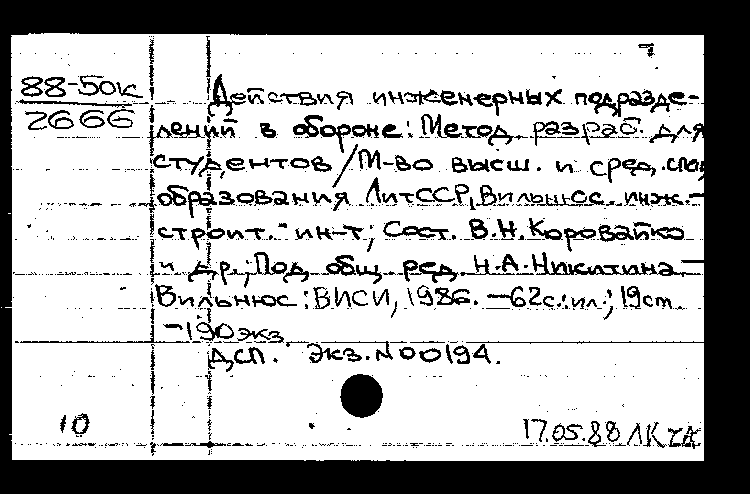 88-50к
2666
Действия инженерных подразде-
лений в обороне: Метод. разраб. для
студентов / М-во высш. и сред. спец
образования ЛитССР, Вильнюс. инж.-
строит. ин-т; Сост. В.Н. Коровайко
и др.; Под общ. ред. Н.А. Никитина.—
Вильнюс: ВИСИ, 1986. —62с.: ил.; 19см.
—190экз.
ДСП. Экз. N 00194.
10
17.05.88 ЛК